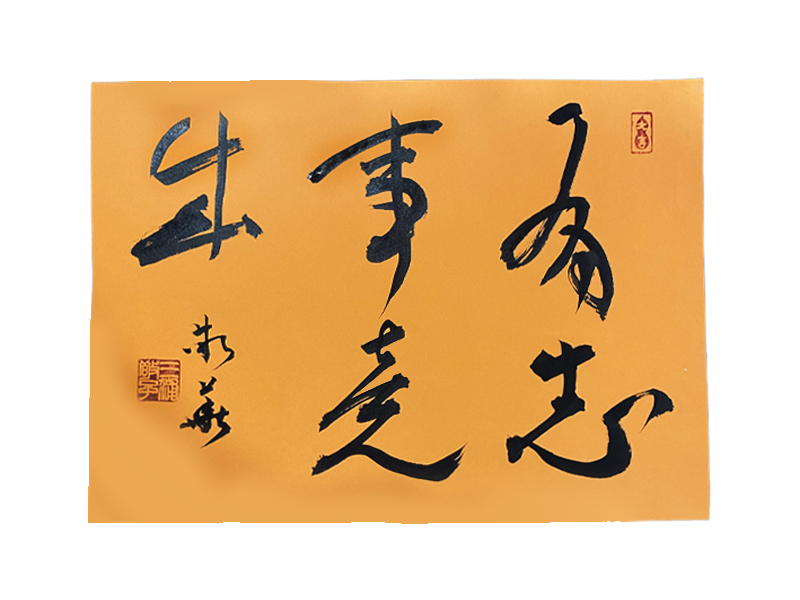 有志
事竟
成